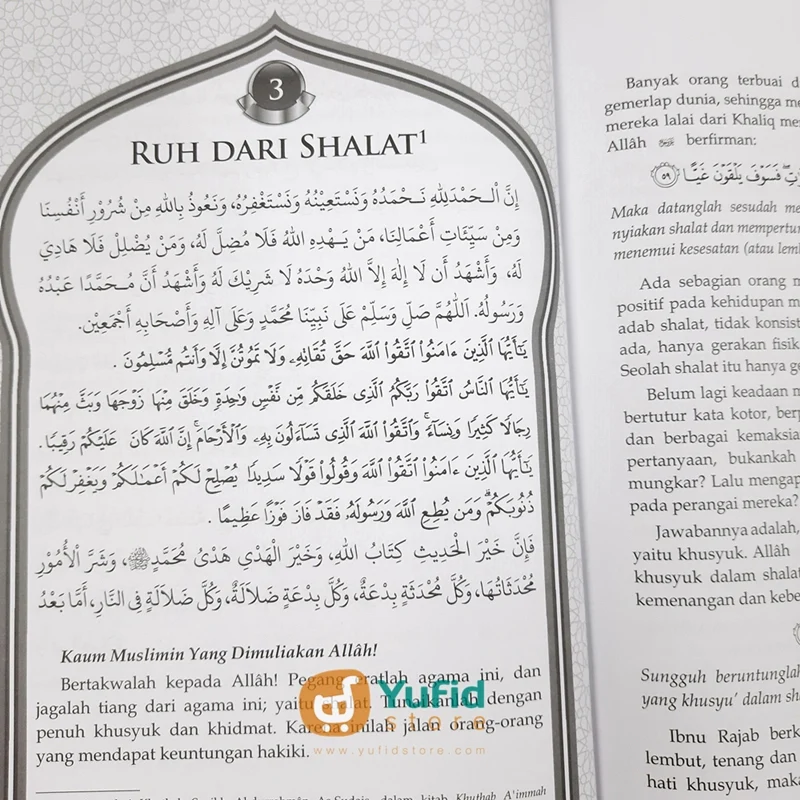 3
RUH DARI SHALAT¹
إِنَّ الْـحَمْدَ لِلَّهِ نَـحْمَدُهُ وَنَسْتَعِيْنُهُ وَنَسْتَغْفِرُهُ، وَنَعُوذُ بِاللهِ مِنْ شُرُورِ أَنْفُسِنَا
وَمِنْ سَيِّئَاتِ أَعْمَالِنَا، مَنْ يَـهْدِهِ اللهُ فَلَا مُضِلَّ لَهُ، وَمَنْ يُضْلِلْ فَلَا هَادِيَ
لَهُ، وَأَشْهَدُ أَن لَا إِلهَ إِلاَّ اللهُ وَحْدَهُ لَا شَرِيْكَ لَهُ وَأَشْهَدُ أَنَّ مُـحَمَّدًا عَبْدُهُ
وَرَسُولُهُ. اَللهُمَّ صَلِّ وَسَلِّمْ عَلَى نَبِيِّنَا مُحَمَّدٍ وَعَلَى آلِهِ وَأَصْحَابِهِ أَجْمَعِيْنَ.
يَـٰٓأَيُّهَا ٱلَّذِينَ ءَامَنُوا۟ ٱتَّقُوا۟ ٱللَّهَ حَقَّ تُقَاتِهِۦ وَلَا تَمُوتُنَّ إِلَّا وَأَنتُم مُّسْلِمُونَ .
يَـٰٓأَيُّهَا ٱلنَّاسُ ٱتَّقُوا۟ رَبَّكُمُ ٱلَّذِى خَلَقَكُم مِّن نَّفْسٍ وَٰحِدَةٍ وَخَلَقَ مِنْهَا زَوْجَهَا وَبَثَّ مِنْهُمَا
رِجَالًا كَثِيرًا وَنِسَآءً ۚ وَٱتَّقُوا۟ ٱللَّهَ ٱلَّذِى تَسَآءَلُونَ بِهِۦ وَٱلْأَرْحَامَ ۚ إِنَّ ٱللَّهَ كَانَ عَلَيْكُمْ رَقِيبًا.
يَـٰٓأَيُّهَا ٱلَّذِينَ ءَامَنُوا۟ ٱتَّقُوا۟ ٱللَّهَ وَقُولُوا۟ قَوْلًا سَدِيدًا يُصْلِحْ لَكُمْ أَعْمَـٰلَكُمْ وَيَغْفِرْ لَكُمْ
ذُنُوبَكُمْ ۗ وَمَن يُطِعِ ٱللَّهَ وَرَسُولَهُۥ فَقَدْ فَازَ فَوْزًا عَظِيمًا .
فَإِنَّ خَيْرَ الْحَدِيْثِ كِتَابُ اللهِ، وَخَيْرَ الْهَدْيِ هَدْيُ مُحَمَّدٍ ﷺ، وَشَرَّ الْأُمُوْرِ
مُحْدَثَاتُهَا، وَكُلَّ مُحْدَثَةٍ بِدْعَةٌ، وَكُلَّ بِدْعَةٍ ضَلاَلَةٌ، وَكُلَّ ضَلاَلَةٍ فِي النَّارِ، أَمَّا بَعْدُ
Kaum Muslimin Yang Dimuliakan Allâh!
Bertakwalah kepada Allâh! Pegang eratlah agama ini, dan
jagalah tiang dari agama ini; yaitu shalat. Tunaikanlah dengan
penuh khusyuk dan khidmat. Karena inilah jalan orang-orang
yang mendapat keuntungan hakiki.
dalam kitab Khuthab A'immah
Yufid
store
www.yufidstore.com
Banyak orang terbuai
gemerlap dunia, sehingga
mereka lalai dari Khaliq
Allâh berfirman:
فَسَوْفَ يَلْقَوْنَ غَيًّا ٥٩
Maka datanglah sesudah
nyiakan shalat dan
menemui kesesatan (atau
Ada sebagian orang
positif pada kehidupan
adab shalat, tidak
ada, hanya gerakan
Seolah shalat itu hanya
Belum lagi keadaan
bertutur kata kotor,
dan berbagai
pertanyaan, bukankah
mungkar? Lalu
pada perangai mereka?
Jawabannya adalah,
yaitu khusyuk. Allâh
khusyuk dalam
kemenangan dan
Sungguh
yang khusyu' dalam
Ibnu Rajab
lembut, tenang dan
hati khusyuk,